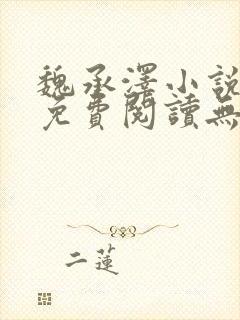 魏承澤小說
免費閱讀無
二蓮